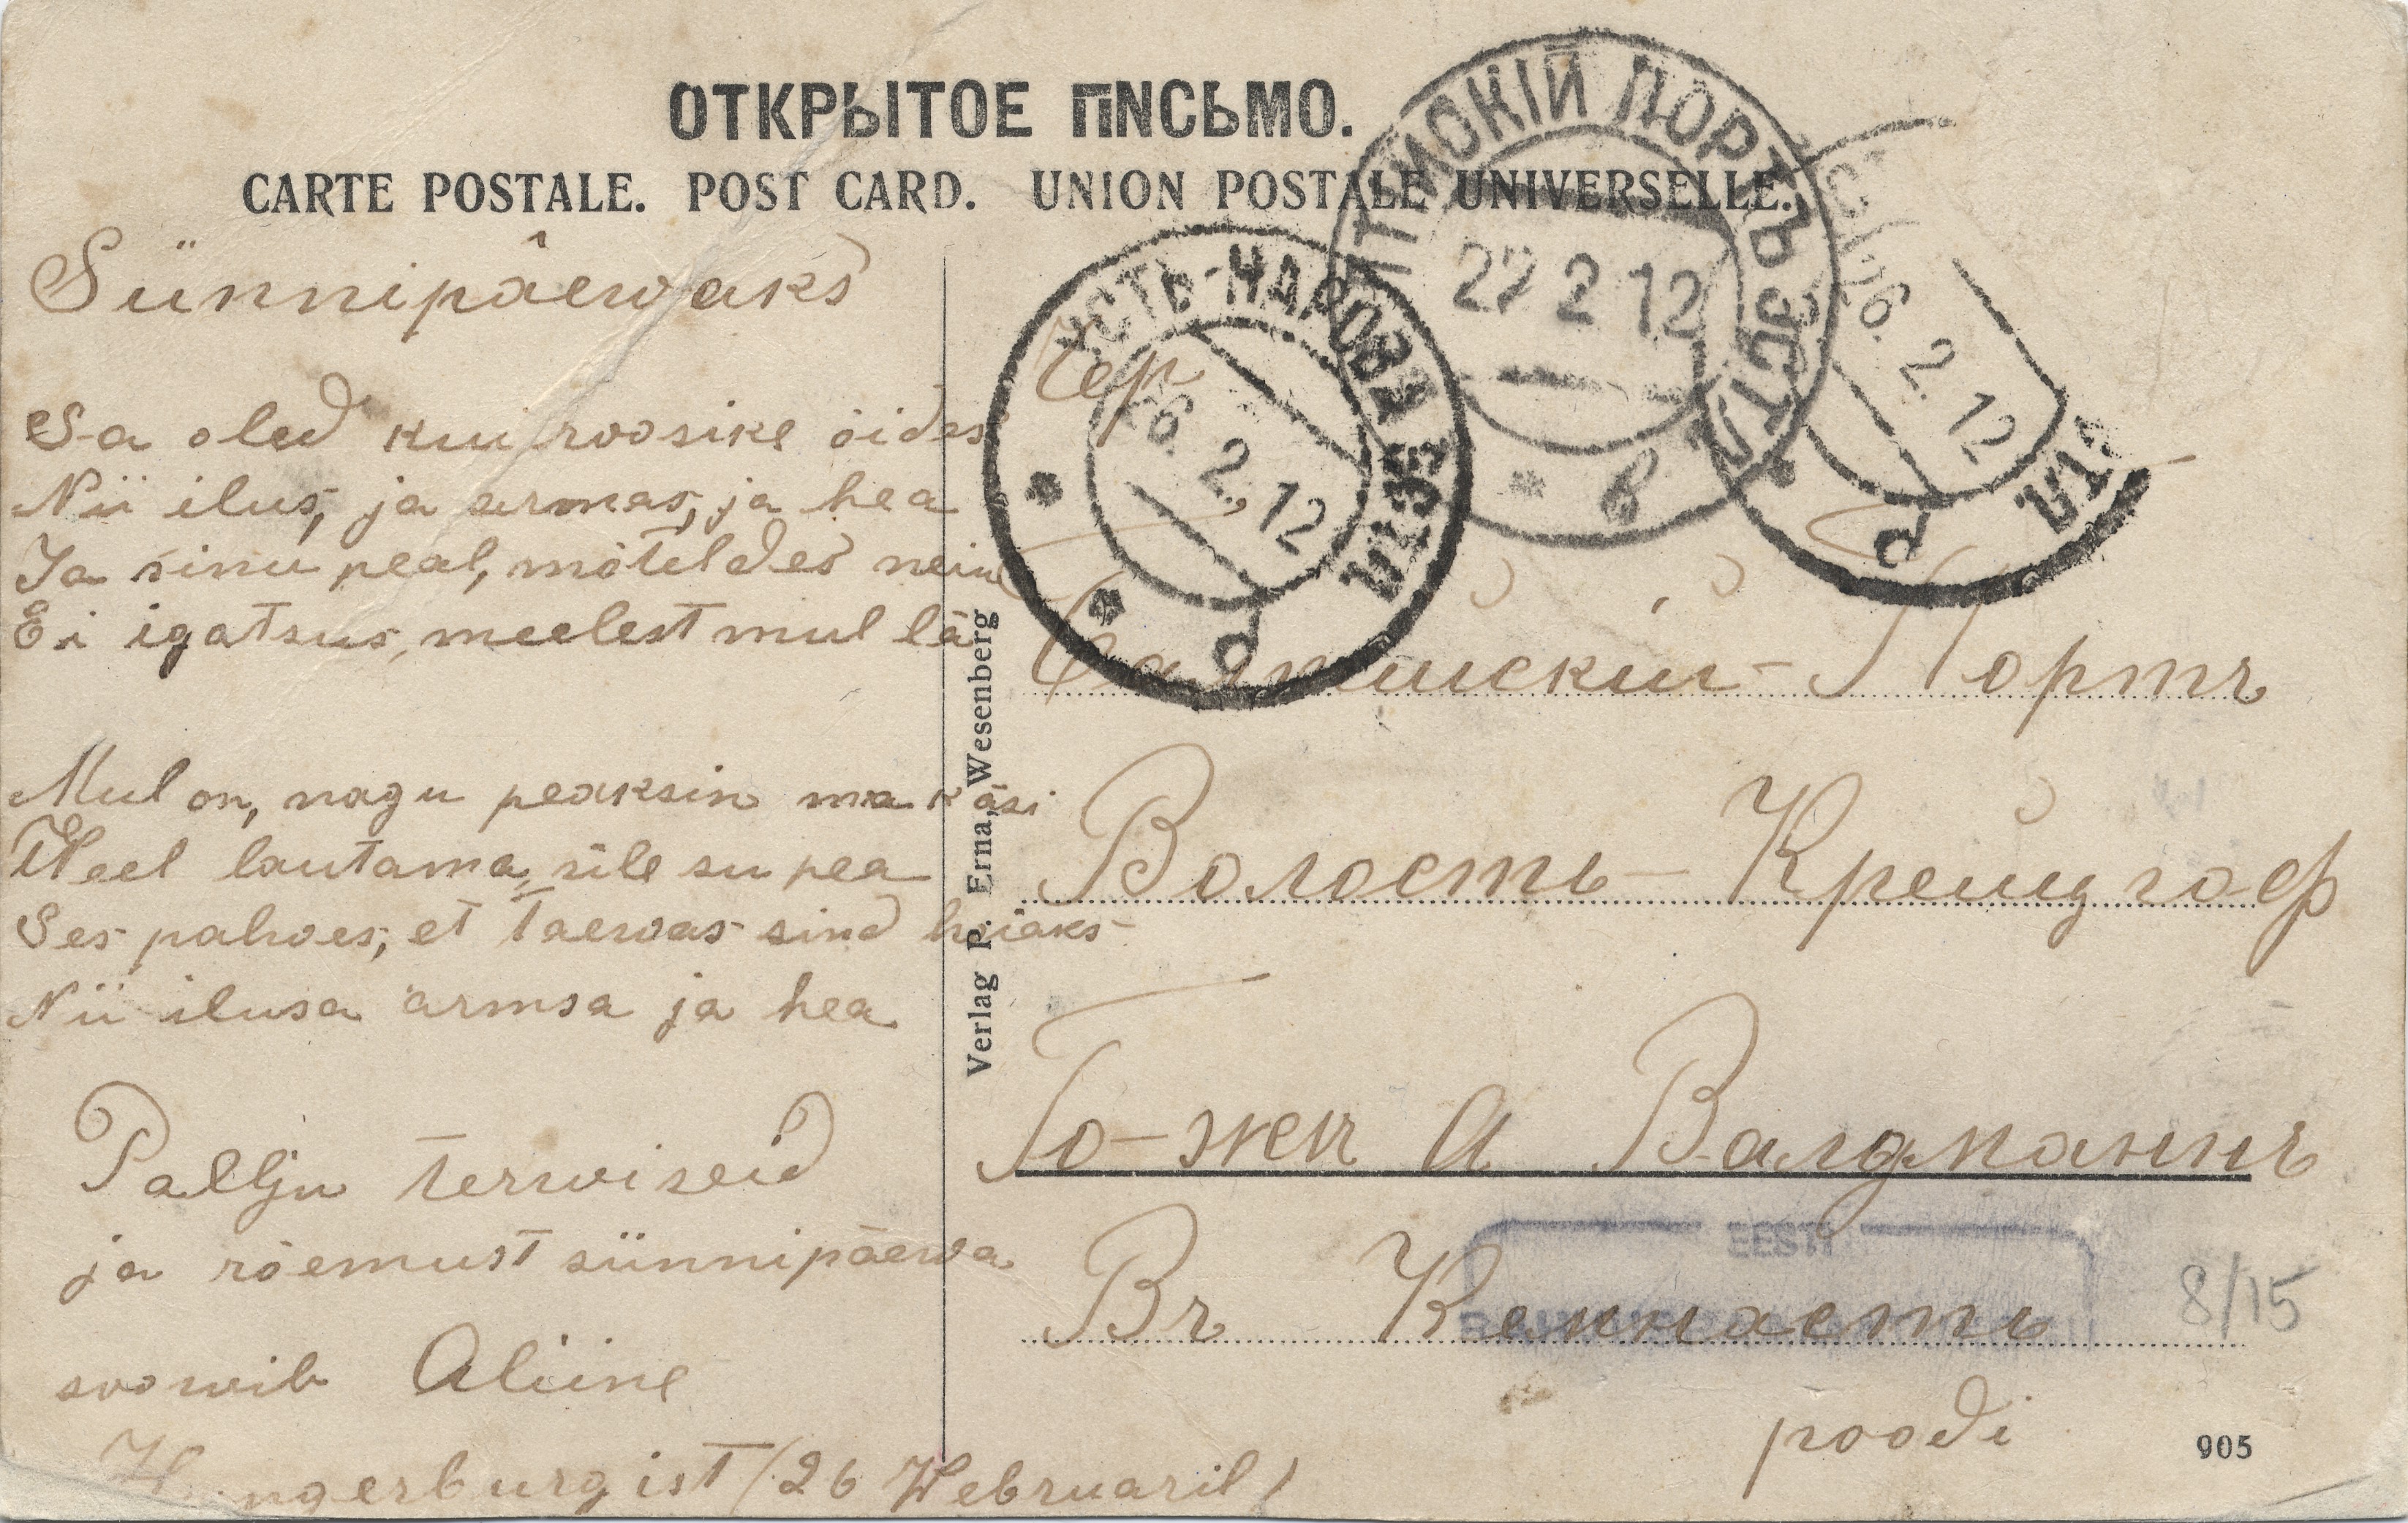 ОТКРЫТОЕ ПИСЬМО.
CARTE POSTALE. POST CARD. UNION POSTALE UNIVERSELLE.
Sünnipäewaks
Sa oled kui roosike õides
Nii ilus, ja armas, ja hea
Ja sinu peal, mõteldes nein
Ei igatsus, meelest mul lä
Mul on, nagu peaksin ma käsi
Weel lautama, üle su pea
Ses palwes, et Taewas sind hoiaks
Nii ilusa armsa ja hea
Palju terwiseid
ja rõemust sünnipäewa
soowib Aliine
Hungerburgist / 26 Webruaril /
Verlag P. Erna, Wesenberg
УСТЬ-НАРОВА ЭСТЛ
26. 2. 12
БАЛТІЙСКІЙ ПОРТЪ ЭСТЛ
27 2 12
в
26. 2. 12
Балтійскій-Портъ
Волость-Крейцгоф
Го-жен А Валдманнъ
Въ Кеннасть
poodi
EESTI
8/15
905